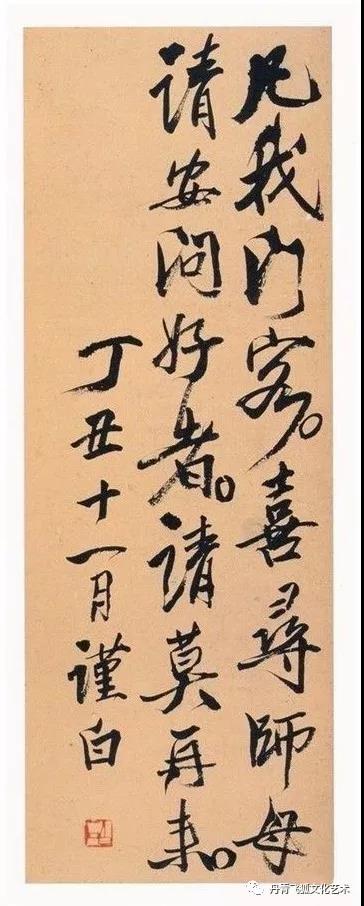 凡我门客。喜尋師母
请安问好者。请莫再来。
丁丑十一月谨白
丹青飞狐文化艺术